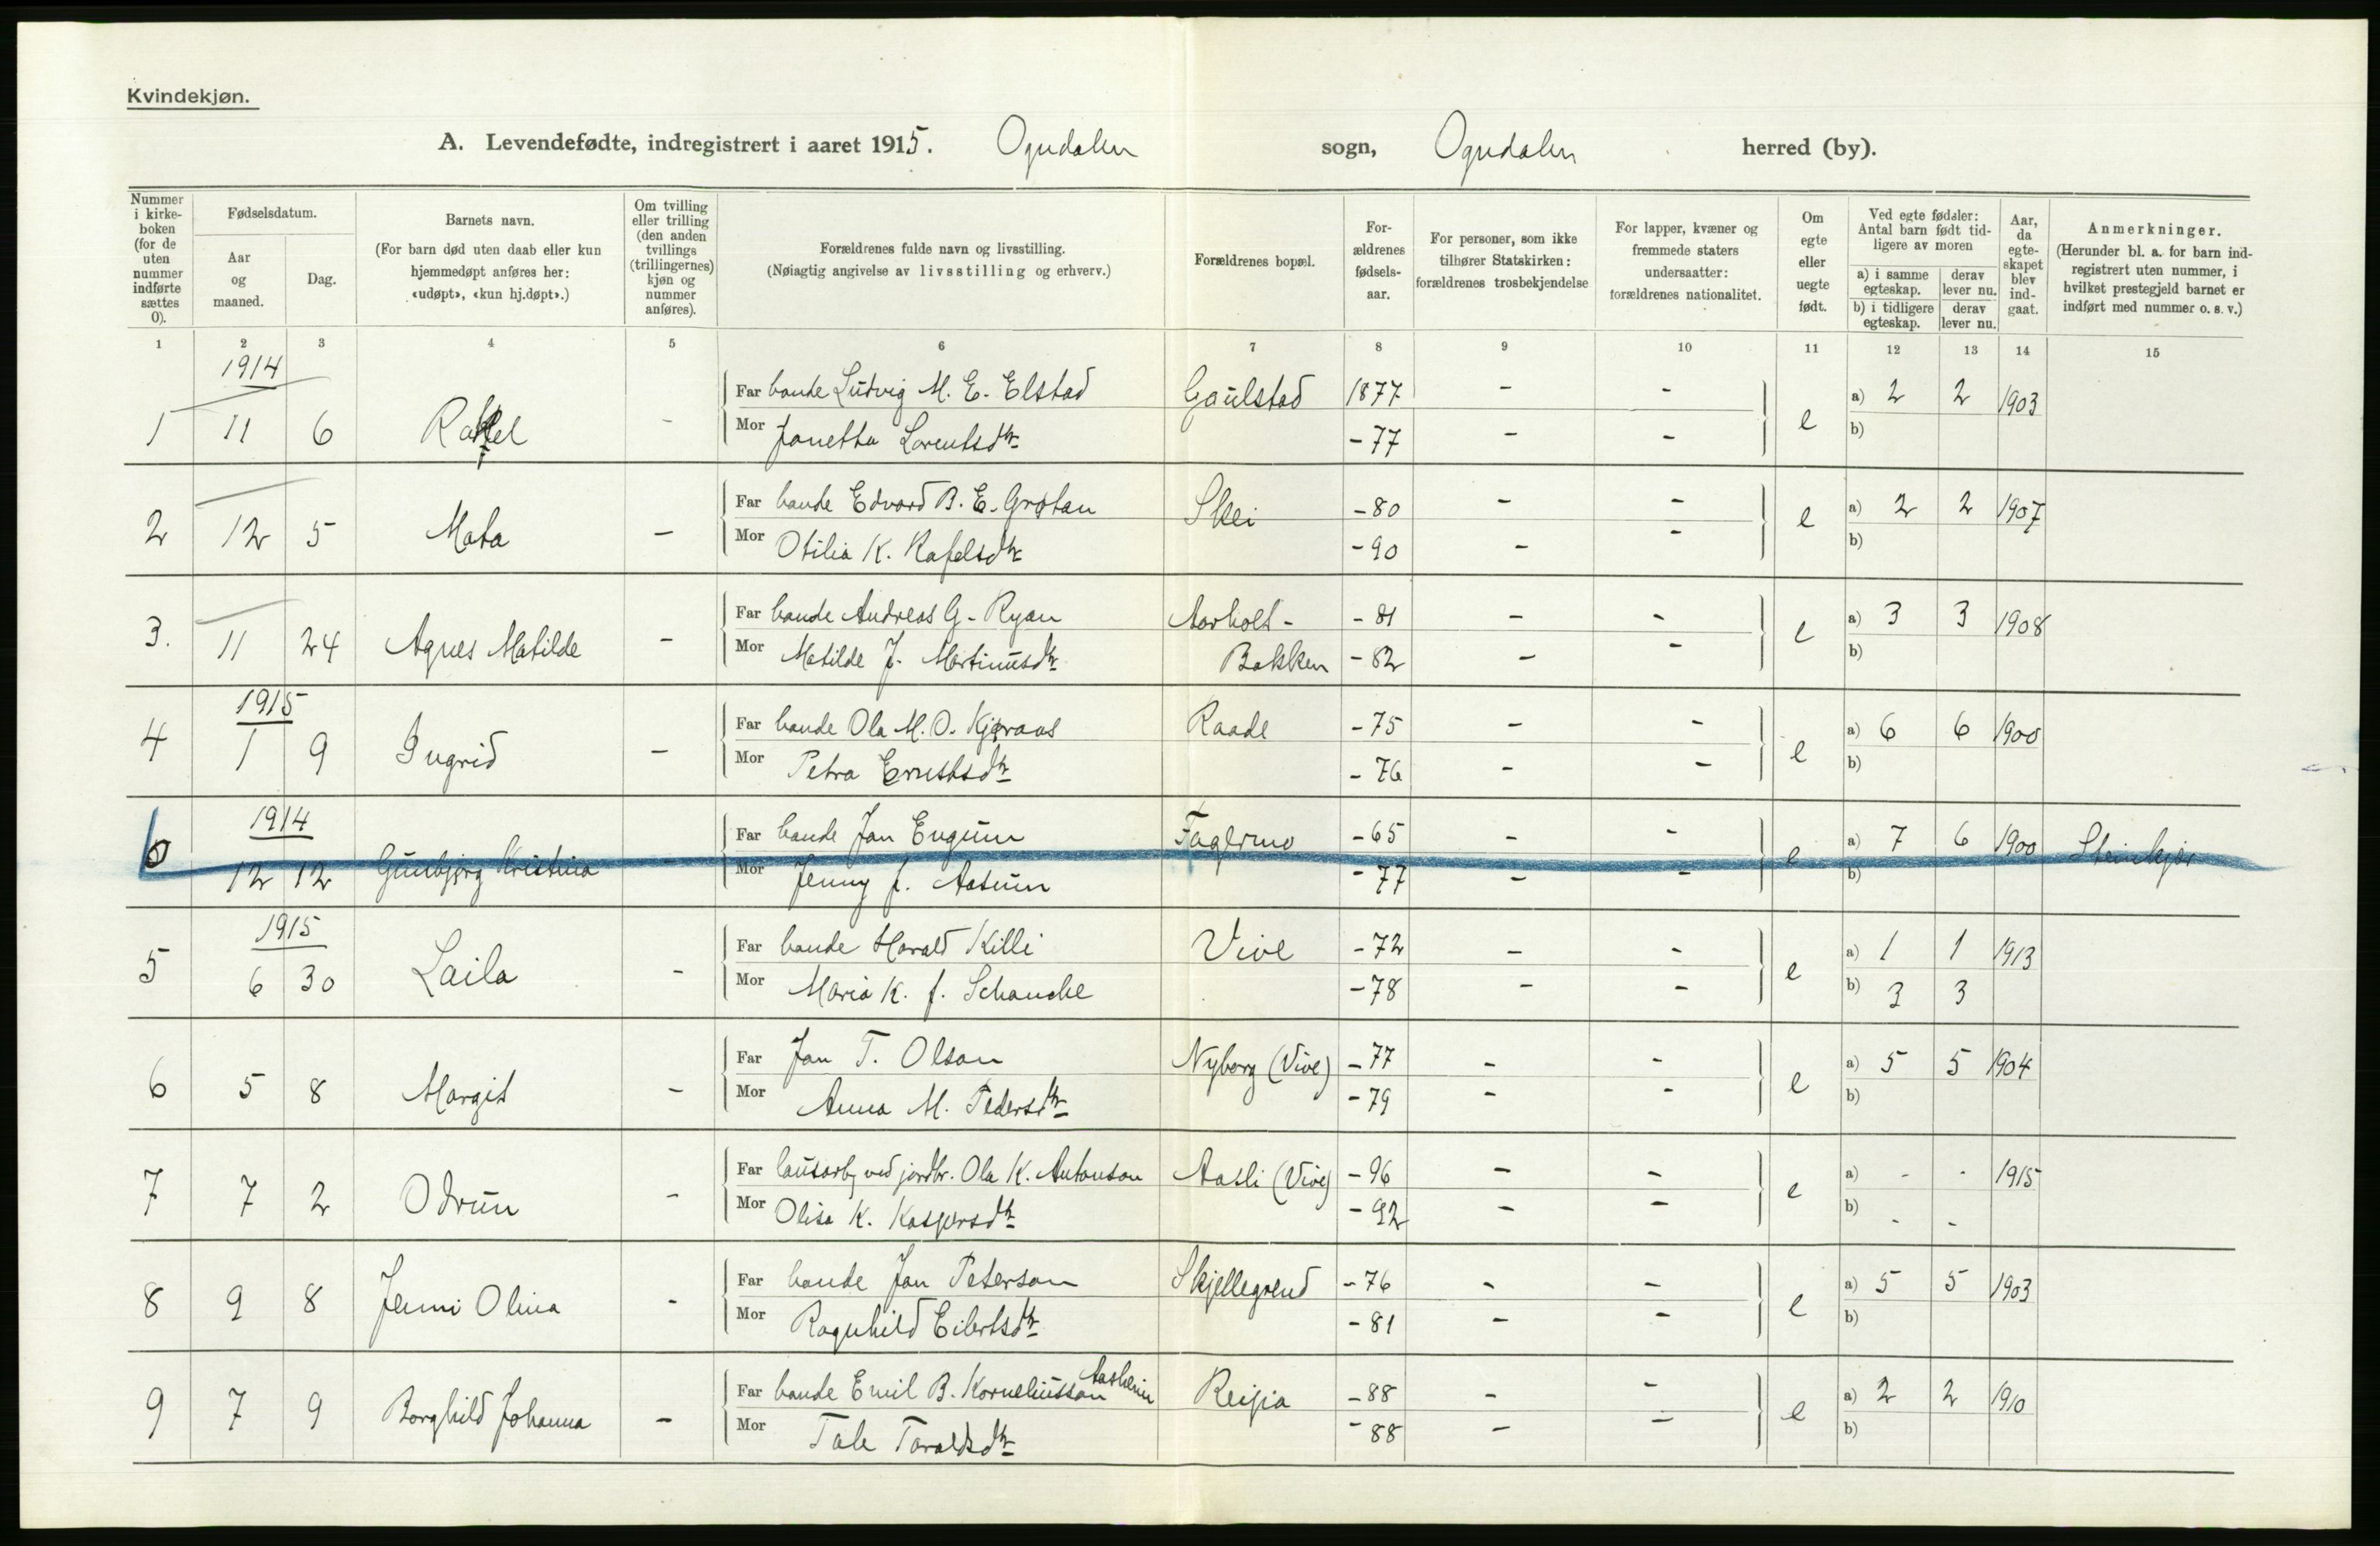 Kvindekjøn.
A. Levendefødte, indregistrert i aaret 1915. Ogndalen sogn, Ogndalen herred (by).
Nummer i kirke-boken (for de uten nummer indførte sættes 0).
Fødselsdatum.
Aar og maaned.
Dag.
Barnets navn.
(For barn død uten daab eller kun hjemmedøpt anføres her: «udøpt», «kun hj.døpt».)
Om tvilling eller trilling (den anden tvillings (trillingernes) kjøn og nummer anføres).
Forældrenes fulde navn og livsstilling.
(Nøiagtig angivelse av livsstilling og erhverv.)
Forældrenes bopæl.
For-ældrenes fødsels-aar.
For personer, som ikke tilhører Statskirken: forældrenes trosbekjendelse
For lapper, kvæner og fremmede staters undersaatter: forældrenes nationalitet.
Om egte eller uegte født.
Ved egte fødsler: Antal barn født tid-ligere av moren
a) i samme egteskap.
derav lever nu.
b) i tidligere egteskap.
derav lever nu.
Aar, da egte-skapet blev ind-gaat.
Anmerkninger.
(Herunder bl. a. for barn ind-registrert uten nummer, i hvilket prestegjeld barnet er indført med nummer o. s. v.)
1 2 3 4 5 6 7 8 9 10 11 12 13 14 15
1914
1 11 6 Rakel - Far bonde Ludvig M. E. Elstad Gaulstad 1877 - - e a) 2 2 1903
Mor Janetta Lorentsdtr - 77 - - b)
2 12 5 Mata - Far bonde Edvard B. E. Grøtan Skei - 80 - - e a) 2 2 1907
Mor Otilia K. Rafelsdtr - 90 - - b)
3. 11 24 Agnes Matilde - Far bonde Andreas G. Ryan Aarholt- - 81 - - e a) 3 3 1908
Mor Matilde J. Martinusdtr Bakken - 82 - - b)
1915
4 1 9 Ingrid - Far bonde Ola M. O. Kjøraas Raade - 75 - - e a) 6 6 1900
Mor Petra Ernstsdtr - 76 - - b)
1914
0 12 12 Gunbjørg Kristina Far bonde Jon Engum Faglimo - 65 - - e a) 7 6 1900 Steinkjer
Mor Jenny f. Aasum - 77 - - b)
1915
5 6 30 Laila - Far bonde Harald Killi Vive - 72 - - e a) 1 1 1913
Mor Maria K. f. Schanche - 78 - - b) 3 3
6 5 8 Margit - Far Jon T. Olson Nyborg (Vive) - 77 - - e a) 5 5 1904
Mor Anna M. Pedersdtr - 79 - - b)
7 7 2 Odrun - Far lausarb. ved jordbr. Ola K. Antonson Aasli (Vive) - 96 - - e a) - - 1915
Mor Olisa K. Kaspersdtr - 92 - - b) - -
8 9 8 Jenni Olina - Far bonde Jon Peterson Skjellegrend - 76 - - e a) 5 5 1903
Mor Ragnhild Eilertsdtr - 81 - - b)
9 7 9 Borghild Johanna - Far bonde Emil B. Korneliusson Aasheim Reisia - 88 - - e a) 2 2 1910
Mor Tale Taraldsdtr - 88 - - b)